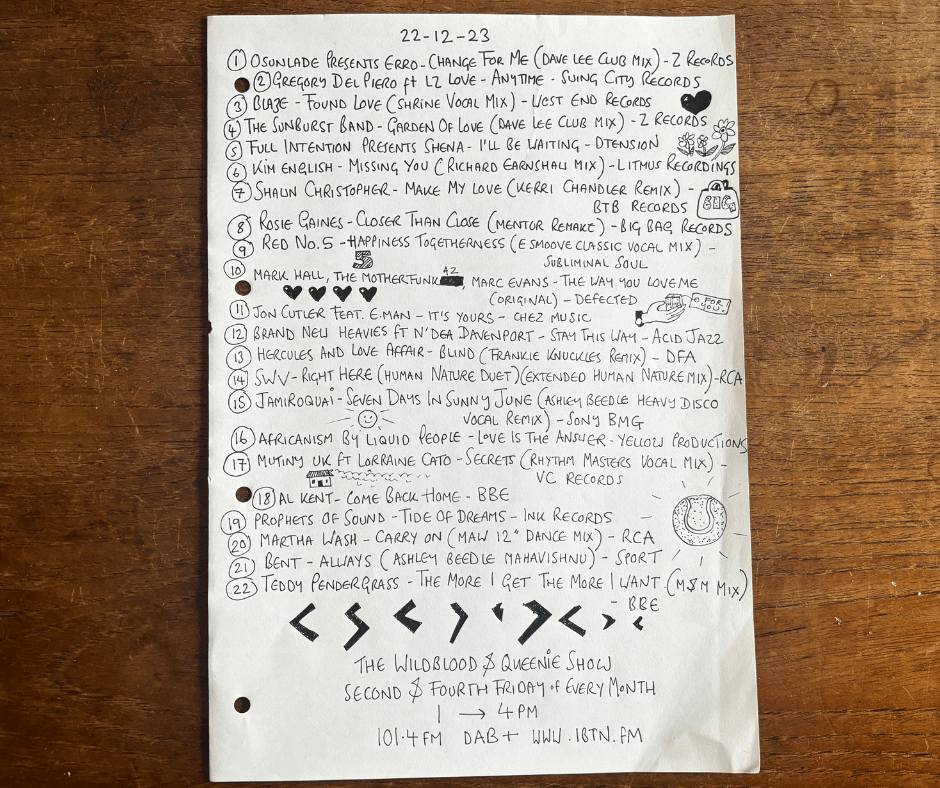 22-12-23
1 OSUNLADE PRESENTS ERRO - CHANGE FOR ME (DAVE LEE CLUB MIX) - Z RECORDS
2 GREGORY DEL PIERO ft LZ LOVE - ANYTIME - SWING CITY RECORDS
3 BLAZE - FOUND LOVE (SHRINE VOCAL MIX) - WEST END RECORDS
4 THE SUNBURST BAND - GARDEN OF LOVE (DAVE LEE CLUB MIX) - Z RECORDS
5 FULL INTENTION PRESENTS SHENA - I'LL BE WAITING - DTENSION
6 KIM ENGLISH - MISSING YOU (RICHARD EARNSHAW MIX) - LITMUS RECORDINGS
7 SHAUN CHRISTOPHER - MAKE MY LOVE (KERRI CHANDLER REMIX) -
BTB RECORDS
BAG
8 ROSIE GAINES - CLOSER THAN CLOSE (MENTOR REMAKE) - BIG BAG RECORDS
9 RED NO.5 - HAPPINESS TOGETHERNESS (E SMOOVE CLASSIC VOCAL MIX) -
5
SUBLIMINAL SOUL
10 MARK HALL, THE MOTHERFUNKAZ, MARC EVANS - THE WAY YOU LOVE ME
(ORIGINAL) - DEFECTED
FOR YOU.
11 JON CUTLER FEAT. E.MAN - IT'S YOURS - CHEZ MUSIC
12 BRAND NEW HEAVIES ft N'DEA DAVENPORT - STAY THIS WAY - ACID JAZZ
13 HERCULES AND LOVE AFFAIR - BLIND (FRANKIE KNUCKLES REMIX) - DFA
14 SWV - RIGHT HERE (HUMAN NATURE DUET)(EXTENDED HUMAN NATURE MIX) - RCA
15 JAMIROQUAI - SEVEN DAYS IN SUNNY JUNE (ASHLEY BEEDLE HEAVY DISCO
VOCAL REMIX) - SONY BMG
16 AFRICANISM BY LIQUID PEOPLE - LOVE IS THE ANSWER - YELLOW PRODUCTIONS
17 MUTINY UK FT LORRAINE CATO - SECRETS (RHYTHM MASTERS VOCAL MIX) -
VC RECORDS
18 AL KENT - COME BACK HOME - BBE
19 PROPHETS OF SOUND - TIDE OF DREAMS - INK RECORDS
20 MARTHA WASH - CARRY ON (MAW 12" DANCE MIX) - RCA
21 BENT - ALWAYS (ASHLEY BEEDLE MAHAVISHNU) - SPORT
22 TEDDY PENDERGRASS - THE MORE I GET THE MORE I WANT (M$M MIX)
- BBE
THE WILDBLOOD & QUEENIE SHOW
SECOND & FOURTH FRIDAY of EVERY MONTH
1 → 4PM
101.4FM DAB+ WWW.1BTN.FM